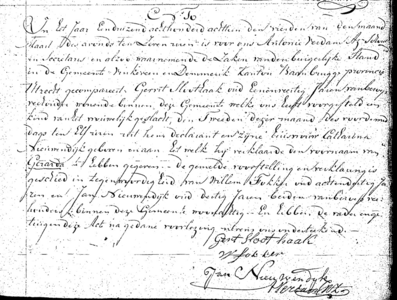 In het Jaar Eenduizend achthonderd achttien den vierden van de maand
Maart des avonds ten zeven uren is voor ons Antonie Verdam Schout
en Secretaris en alzoo waarnemende de Zaken van den burgerlijke Stand
in de Gemeente Vinkeveen en Demmerik Kanton provincie
Utrecht gecompareerd Gerrit Slothaak oud Jaren van beroep
wonende binnen deze Gemeente welke ons heeft voorgesteld een
kind van het geslacht, den tweeden dezer maand des voormid
dags ten Elf uren uit hem declarant en zijne huisvrouw Catharina
Nieuwendijk geboren en aan het welk hij verklaarde den voornaam van
Gerarda te hebben gegeven de gemelde voorstelling en verklaring is
geschied in tegenwoordigheid van Willem Fokker oud achtendertig Ja
ren en Jan Nieuwendijk oud dertig Jaren beiden van beroep
binnen deze Gemeente woonachtig En hebben de vader en ge
tuigen deze Akte na gedane voorlezing met ons onderteekend
Gerrit Slothaak
W Fokker
Jan Nieuwendijk